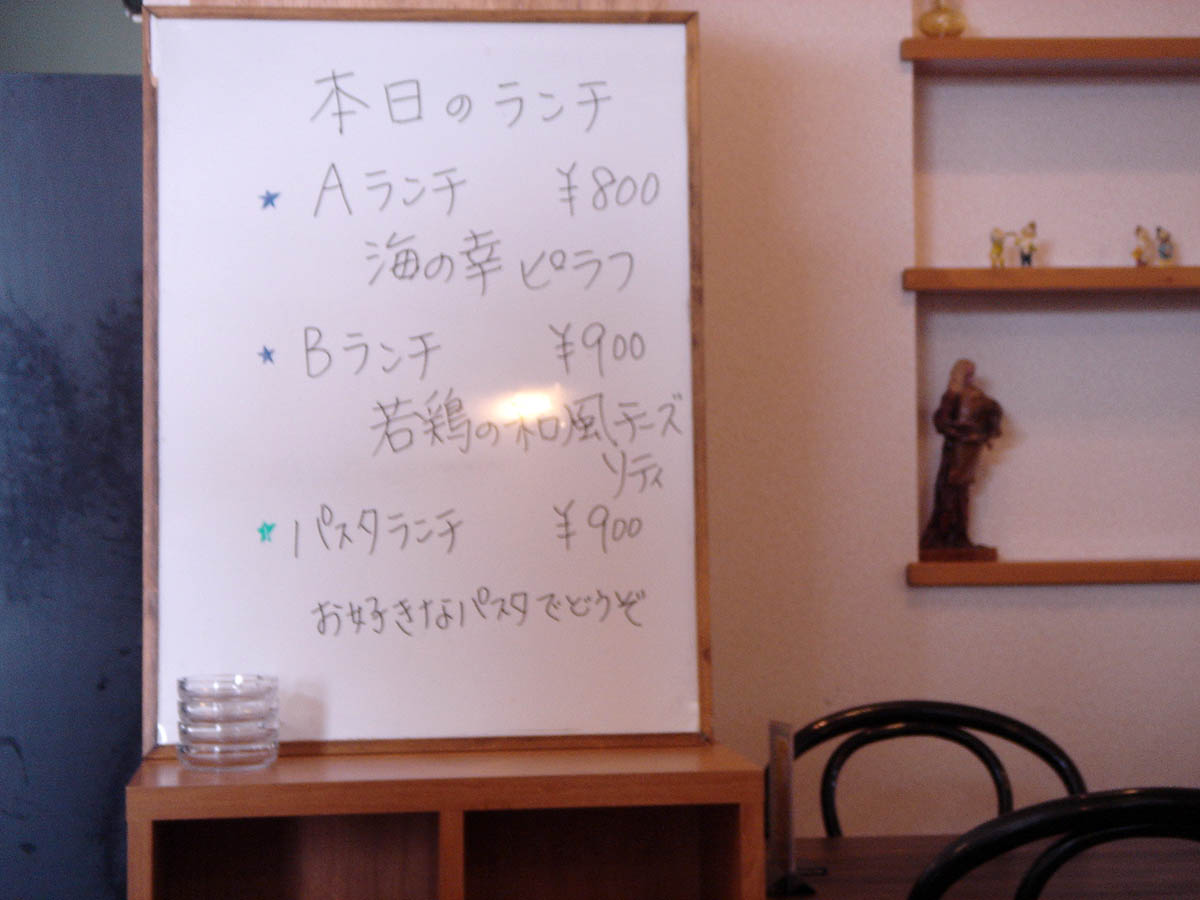 本日のランチ
★ Aランチ ¥800
海の幸ピラフ
★ Bランチ ¥900
若鶏の和風チーズ
ソティ
★ パスタランチ ¥900
お好きなパスタでどうぞ